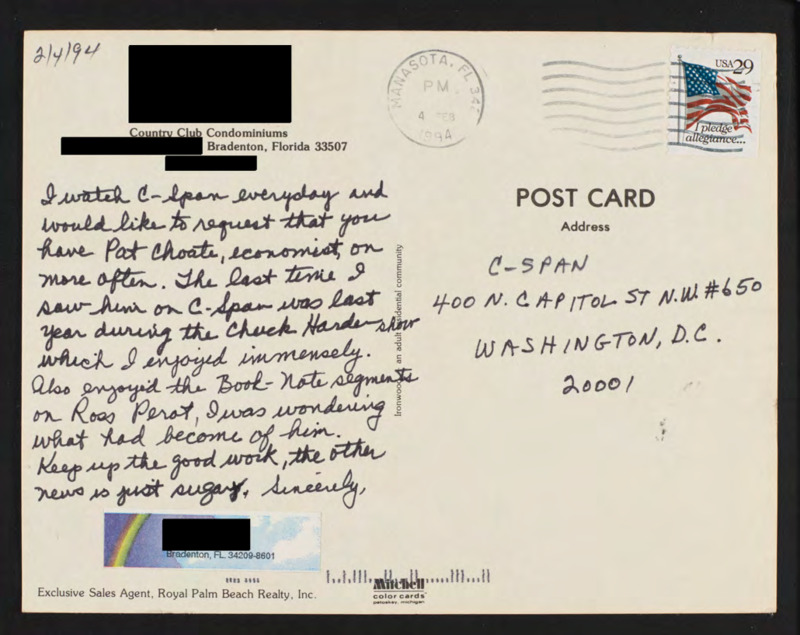 2/4/94
Country Club Condominiums
Bradenton, Florida 33507
MANASOTA, FL 342
PM
4 FEB
1994
USA 29
I pledge
allegiance...
I watch C-Span everyday and
would like to request that you
have Pat Choate, economist, on
more often. The last time I
saw him on C-Span was last
year during the Chuck Harder show
which I enjoyed immensely.
Also enjoyed the Book-Note segments
on Ross Perot, I was wondering
what had become of him.
Keep up the good work, the other
news is just sugary. Sincerely,
Bradenton, FL. 34209-8601
Exclusive Sales Agent, Royal Palm Beach Realty, Inc.
Ironwood an adult residential community
Mitchell
color cards
petoskey, michigan
POST CARD
Address
C-SPAN
400 N. CAPITOL ST N.W. #650
WASHINGTON, D.C.
20001